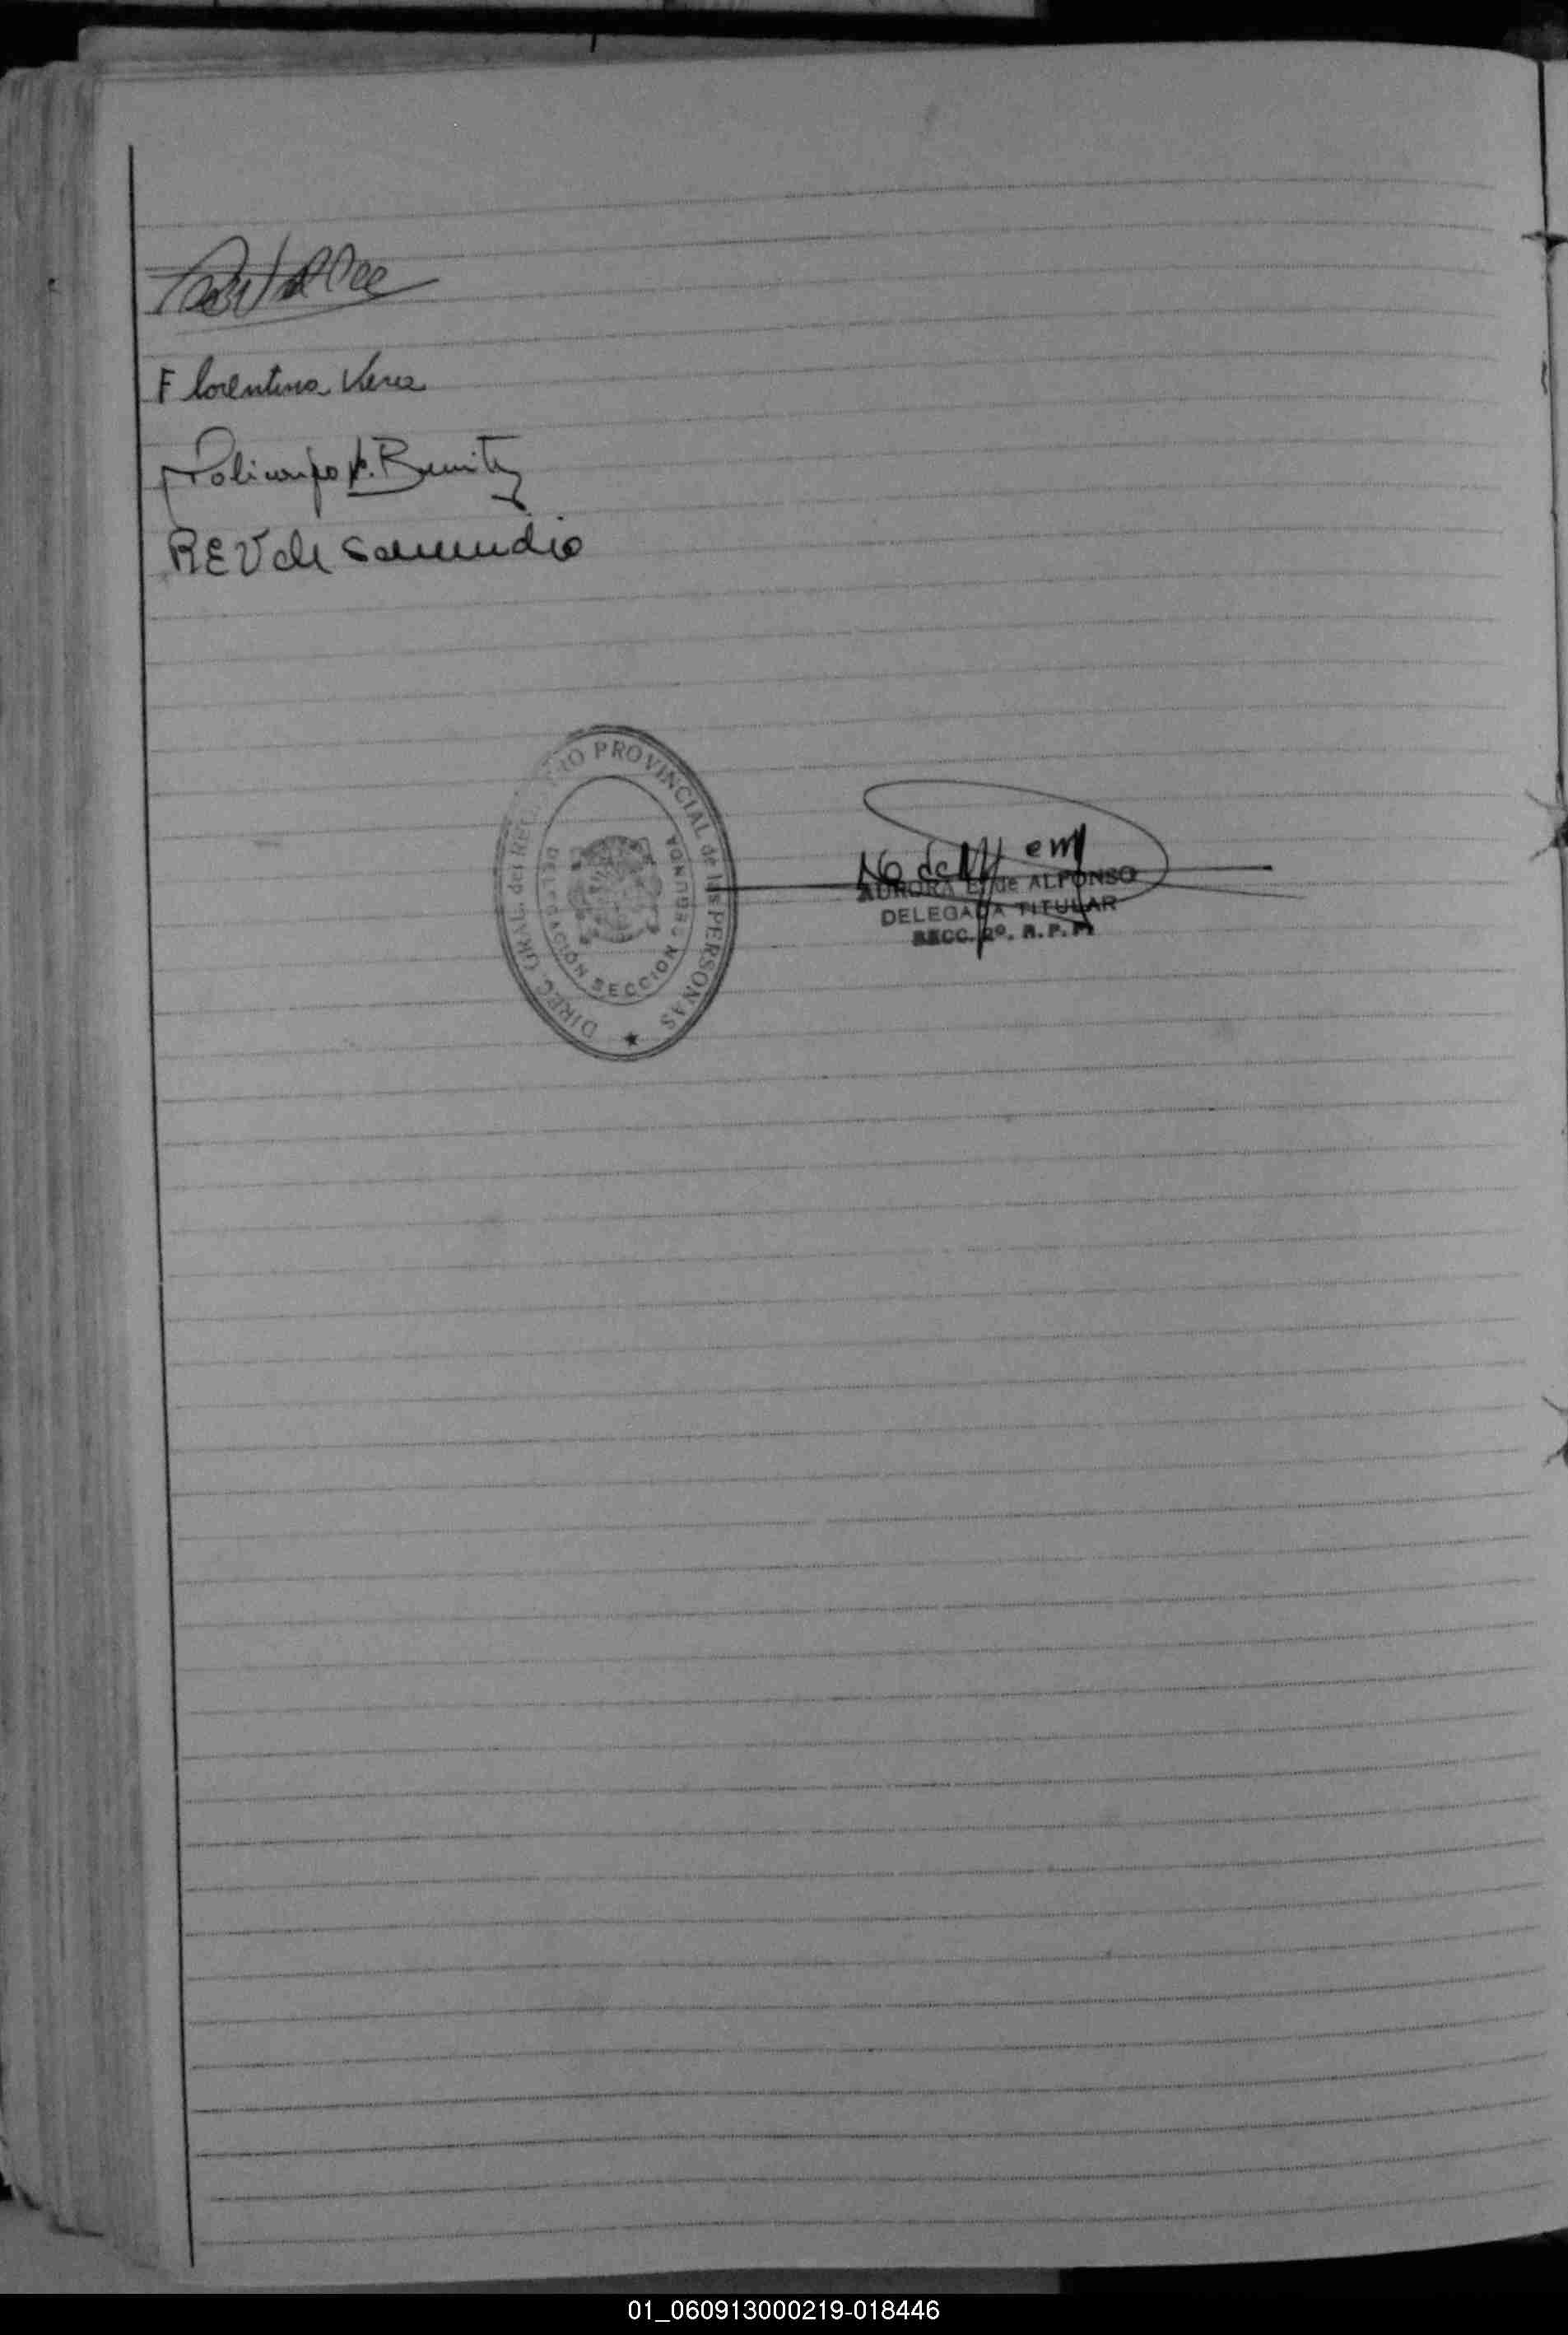 Florentina Vera
Policarpo V. Benitez
REV de Samudio
DIREC. GRAL. del REGISTRO PROVINCIAL de las PERSONAS
DELEGACIÓN SECCION SEGUNDA
AURORA E. de ALFONSO
DELEGADA TITULAR
SECC. 2º. R. P. P.
01_060913000219-018446